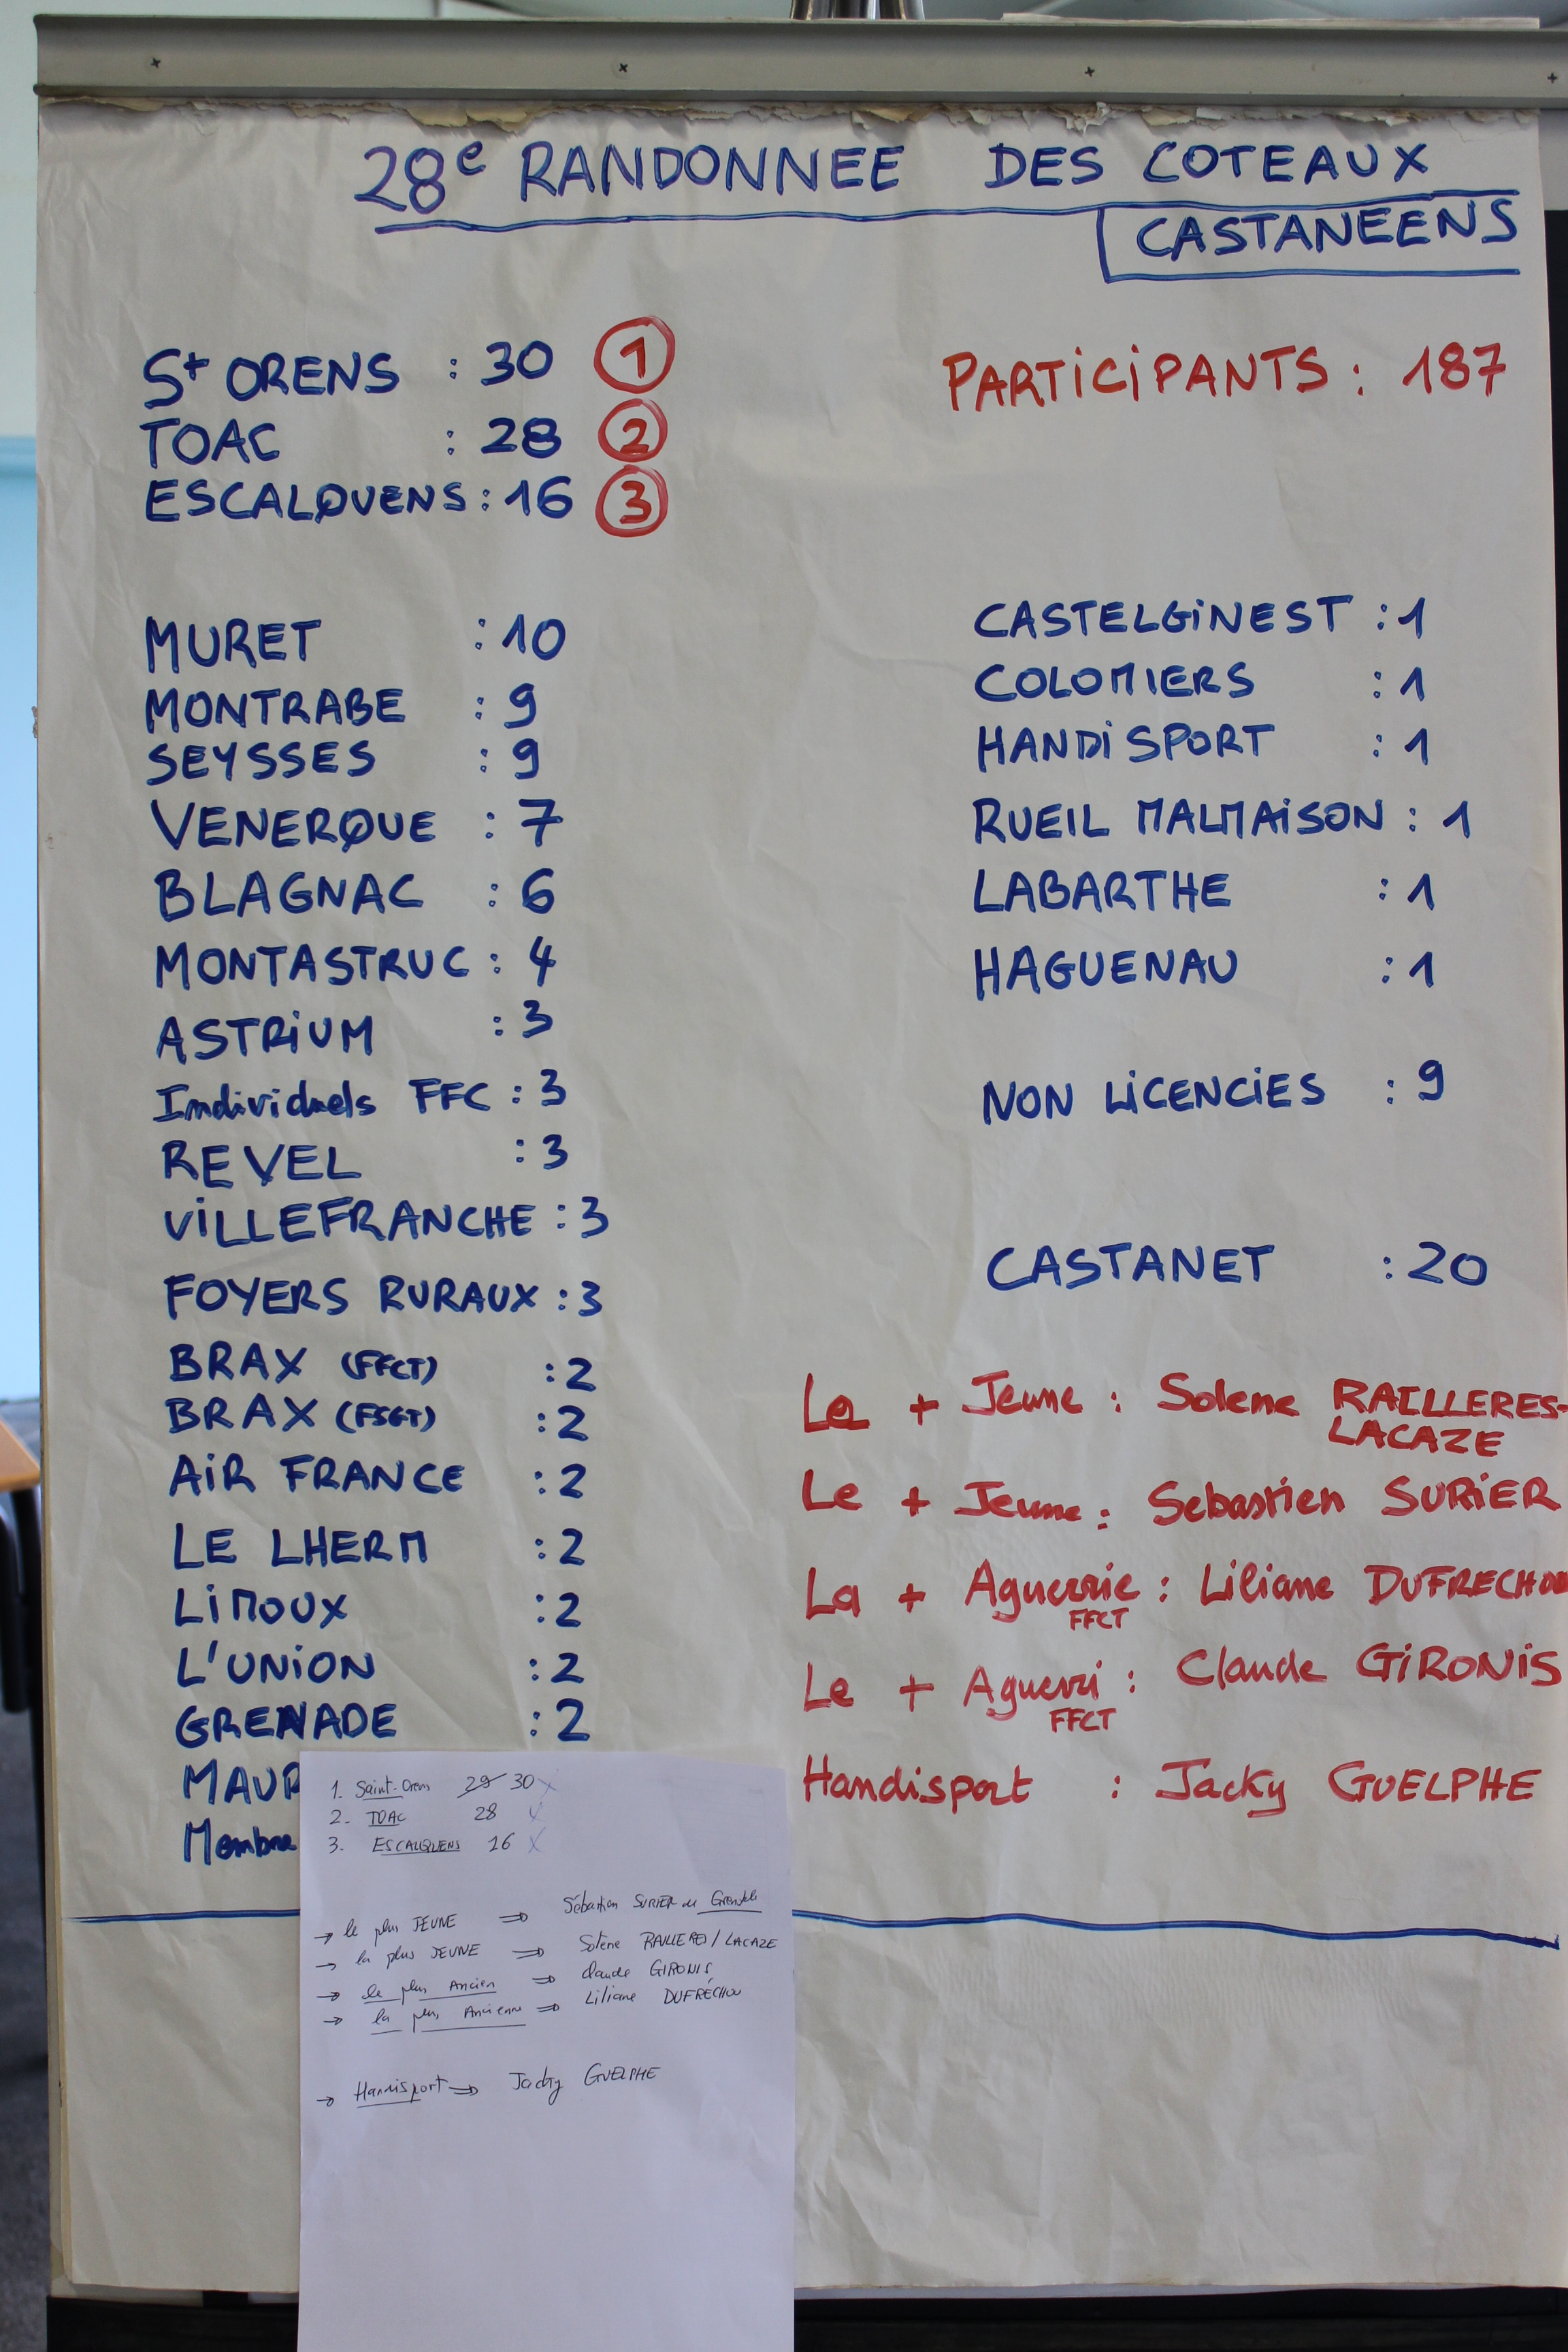 28e RANDONNEE DES COTEAUX
CASTANEENS
St ORENS : 30 1
TOAC : 28 2
ESCALQUENS : 16 3
PARTICIPANTS : 187
MURET : 10
MONTRABE : 9
SEYSSES : 9
VENERQUE : 7
BLAGNAC : 6
MONTASTRUC : 4
ASTRIUM : 3
Individuels FFC : 3
REVEL : 3
VILLEFRANCHE : 3
FOYERS RURAUX : 3
BRAX (FFCT) : 2
BRAX (FSGT) : 2
AIR FRANCE : 2
LE LHERM : 2
LIMOUX : 2
L'UNION : 2
GRENADE : 2
MAUR
Membre
CASTELGINEST : 1
COLOMIERS : 1
HANDISPORT : 1
RUEIL MALMAISON : 1
LABARTHE : 1
HAGUENAU : 1
NON LICENCIES : 9
CASTANET : 20
La + Jeune : Solene RAILLERES-
LACAZE
Le + Jeune : Sebastien SURIER
La + Aguerrie : Liliane DUFRECHOU
FFCT
Le + Aguerri : Claude GIRONIS
FFCT
Handisport : Jacky GUELPHE
1. Saint-Orens 29 30 x
2. TOAC 28 x
3. ESCALQUENS 16 x
→ le plus JEUNE ⇒ Sébastien SURIER de
→ la plus JEUNE ⇒ Solène RAILLERES / LACAZE
→ le plus Ancien ⇒ Claude GIRONIS
→ la plus Ancienne ⇒ Liliane DUFRÉCHOU
→ Handisport ⇒ Jacky GUELPHE